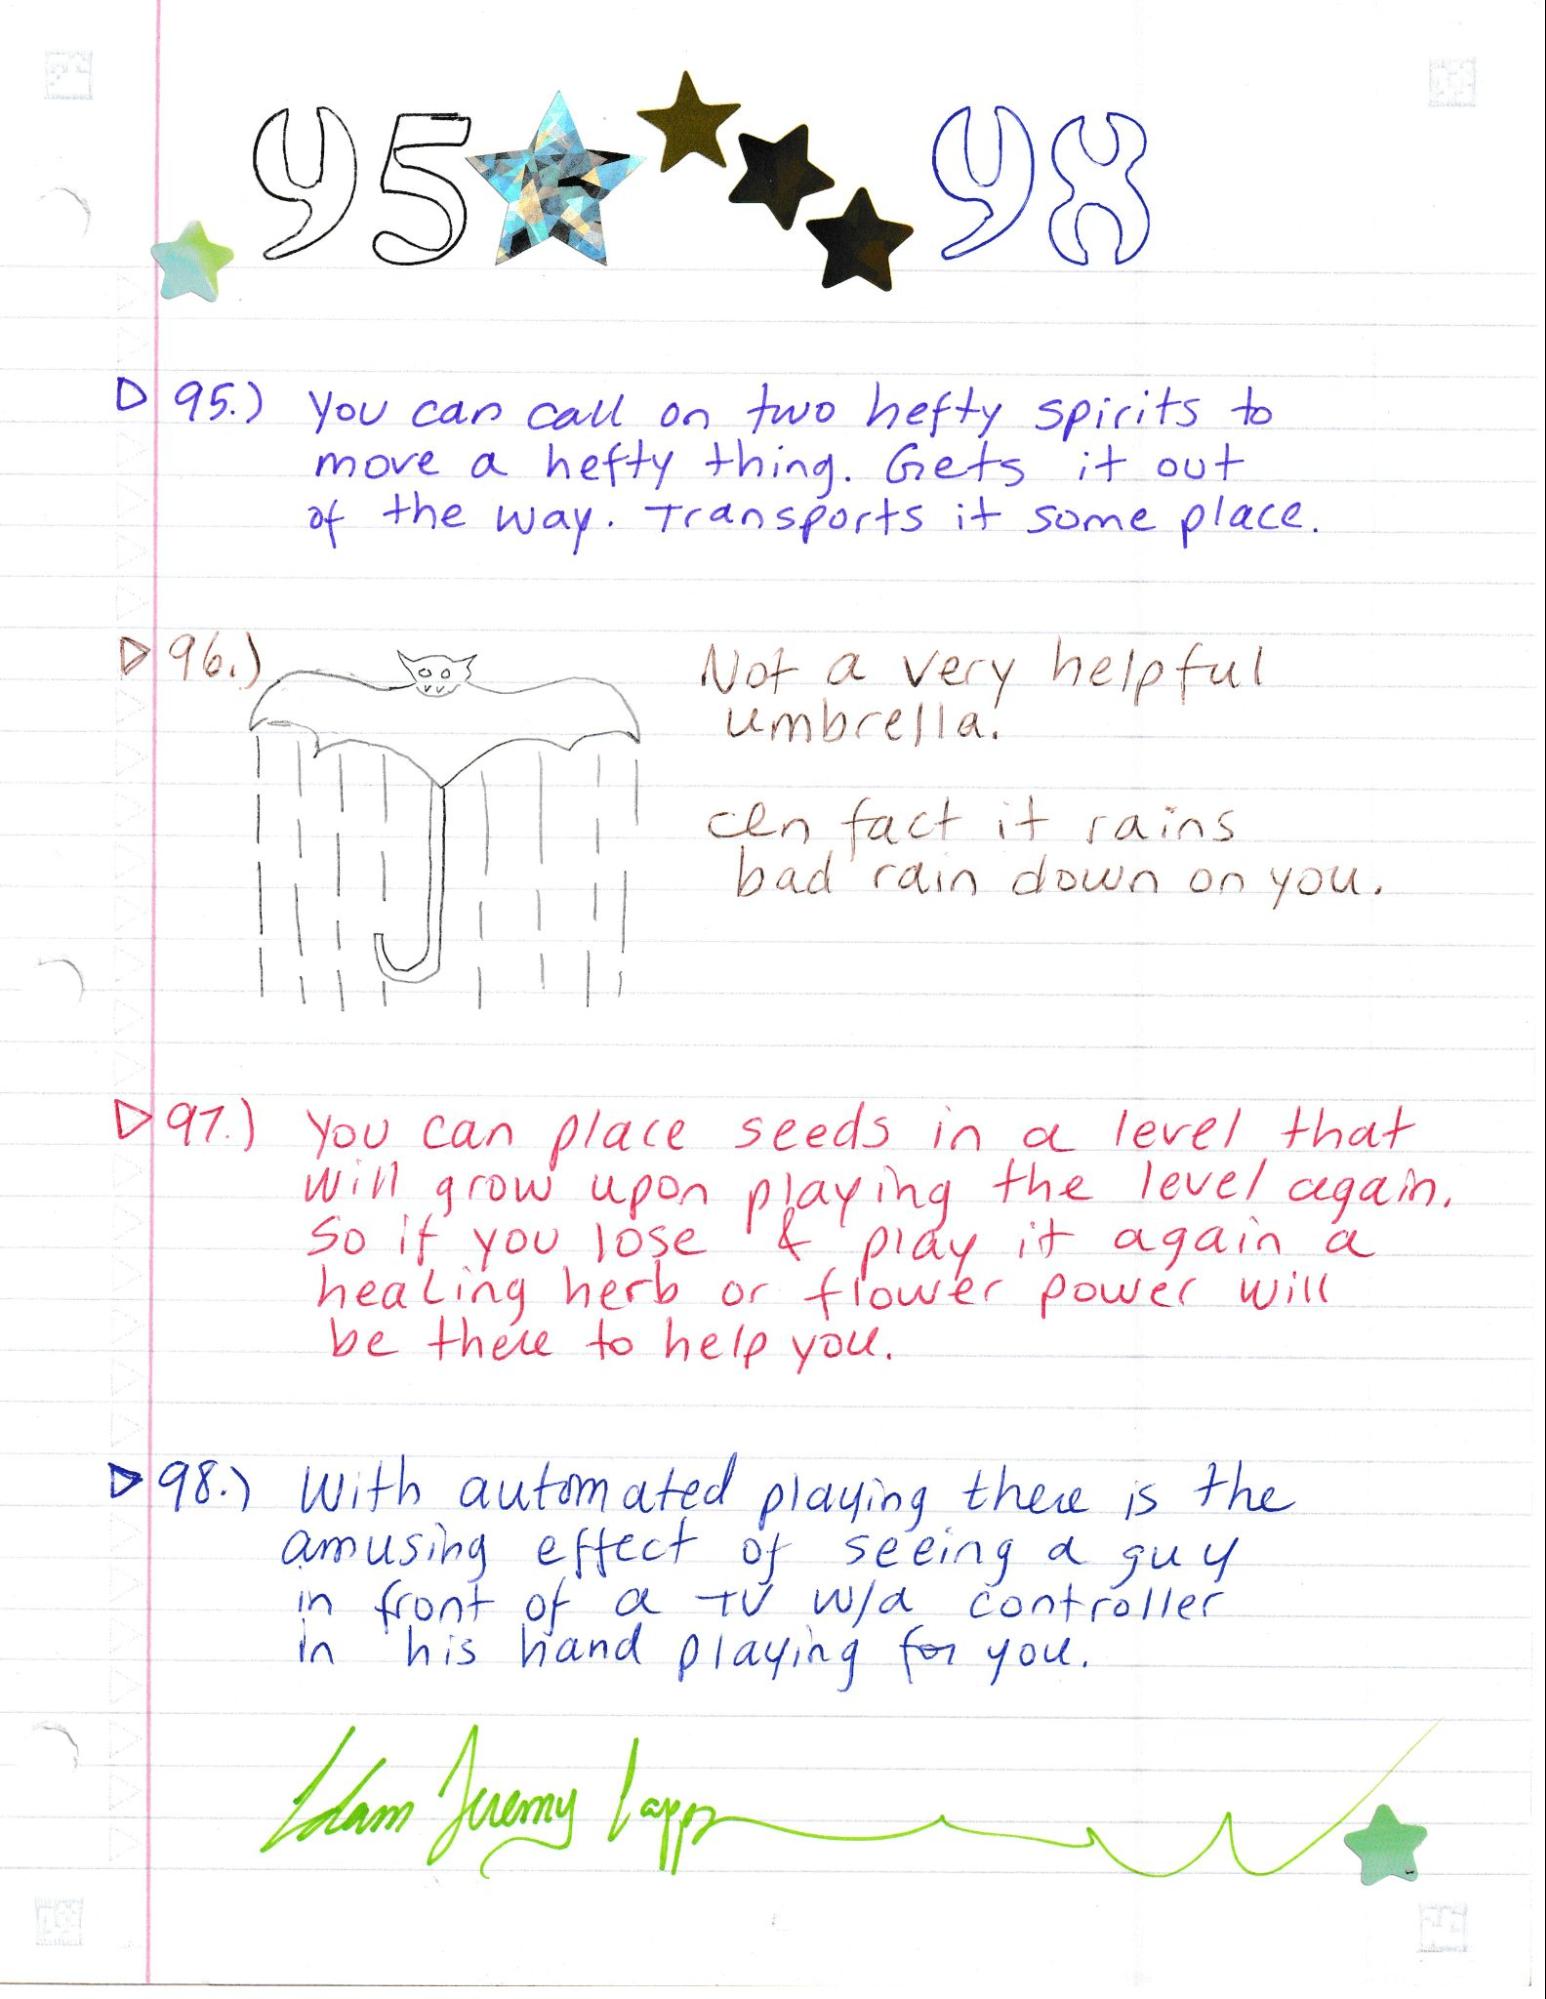 95 98
95.) You can call on two hefty spirits to
move a hefty thing. Gets it out
of the way. Transports it some place.
96.) Not a very helpful
umbrella.
In fact it rains
bad rain down on you.
97.) You can place seeds in a level that
will grow upon playing the level again.
So if you lose & play it again a
healing herb or flower power will
be there to help you.
98.) With automated playing there is the
amusing effect of seeing a guy
in front of a TV w/a controller
in his hand playing for you.
Adam Jeremy Capps